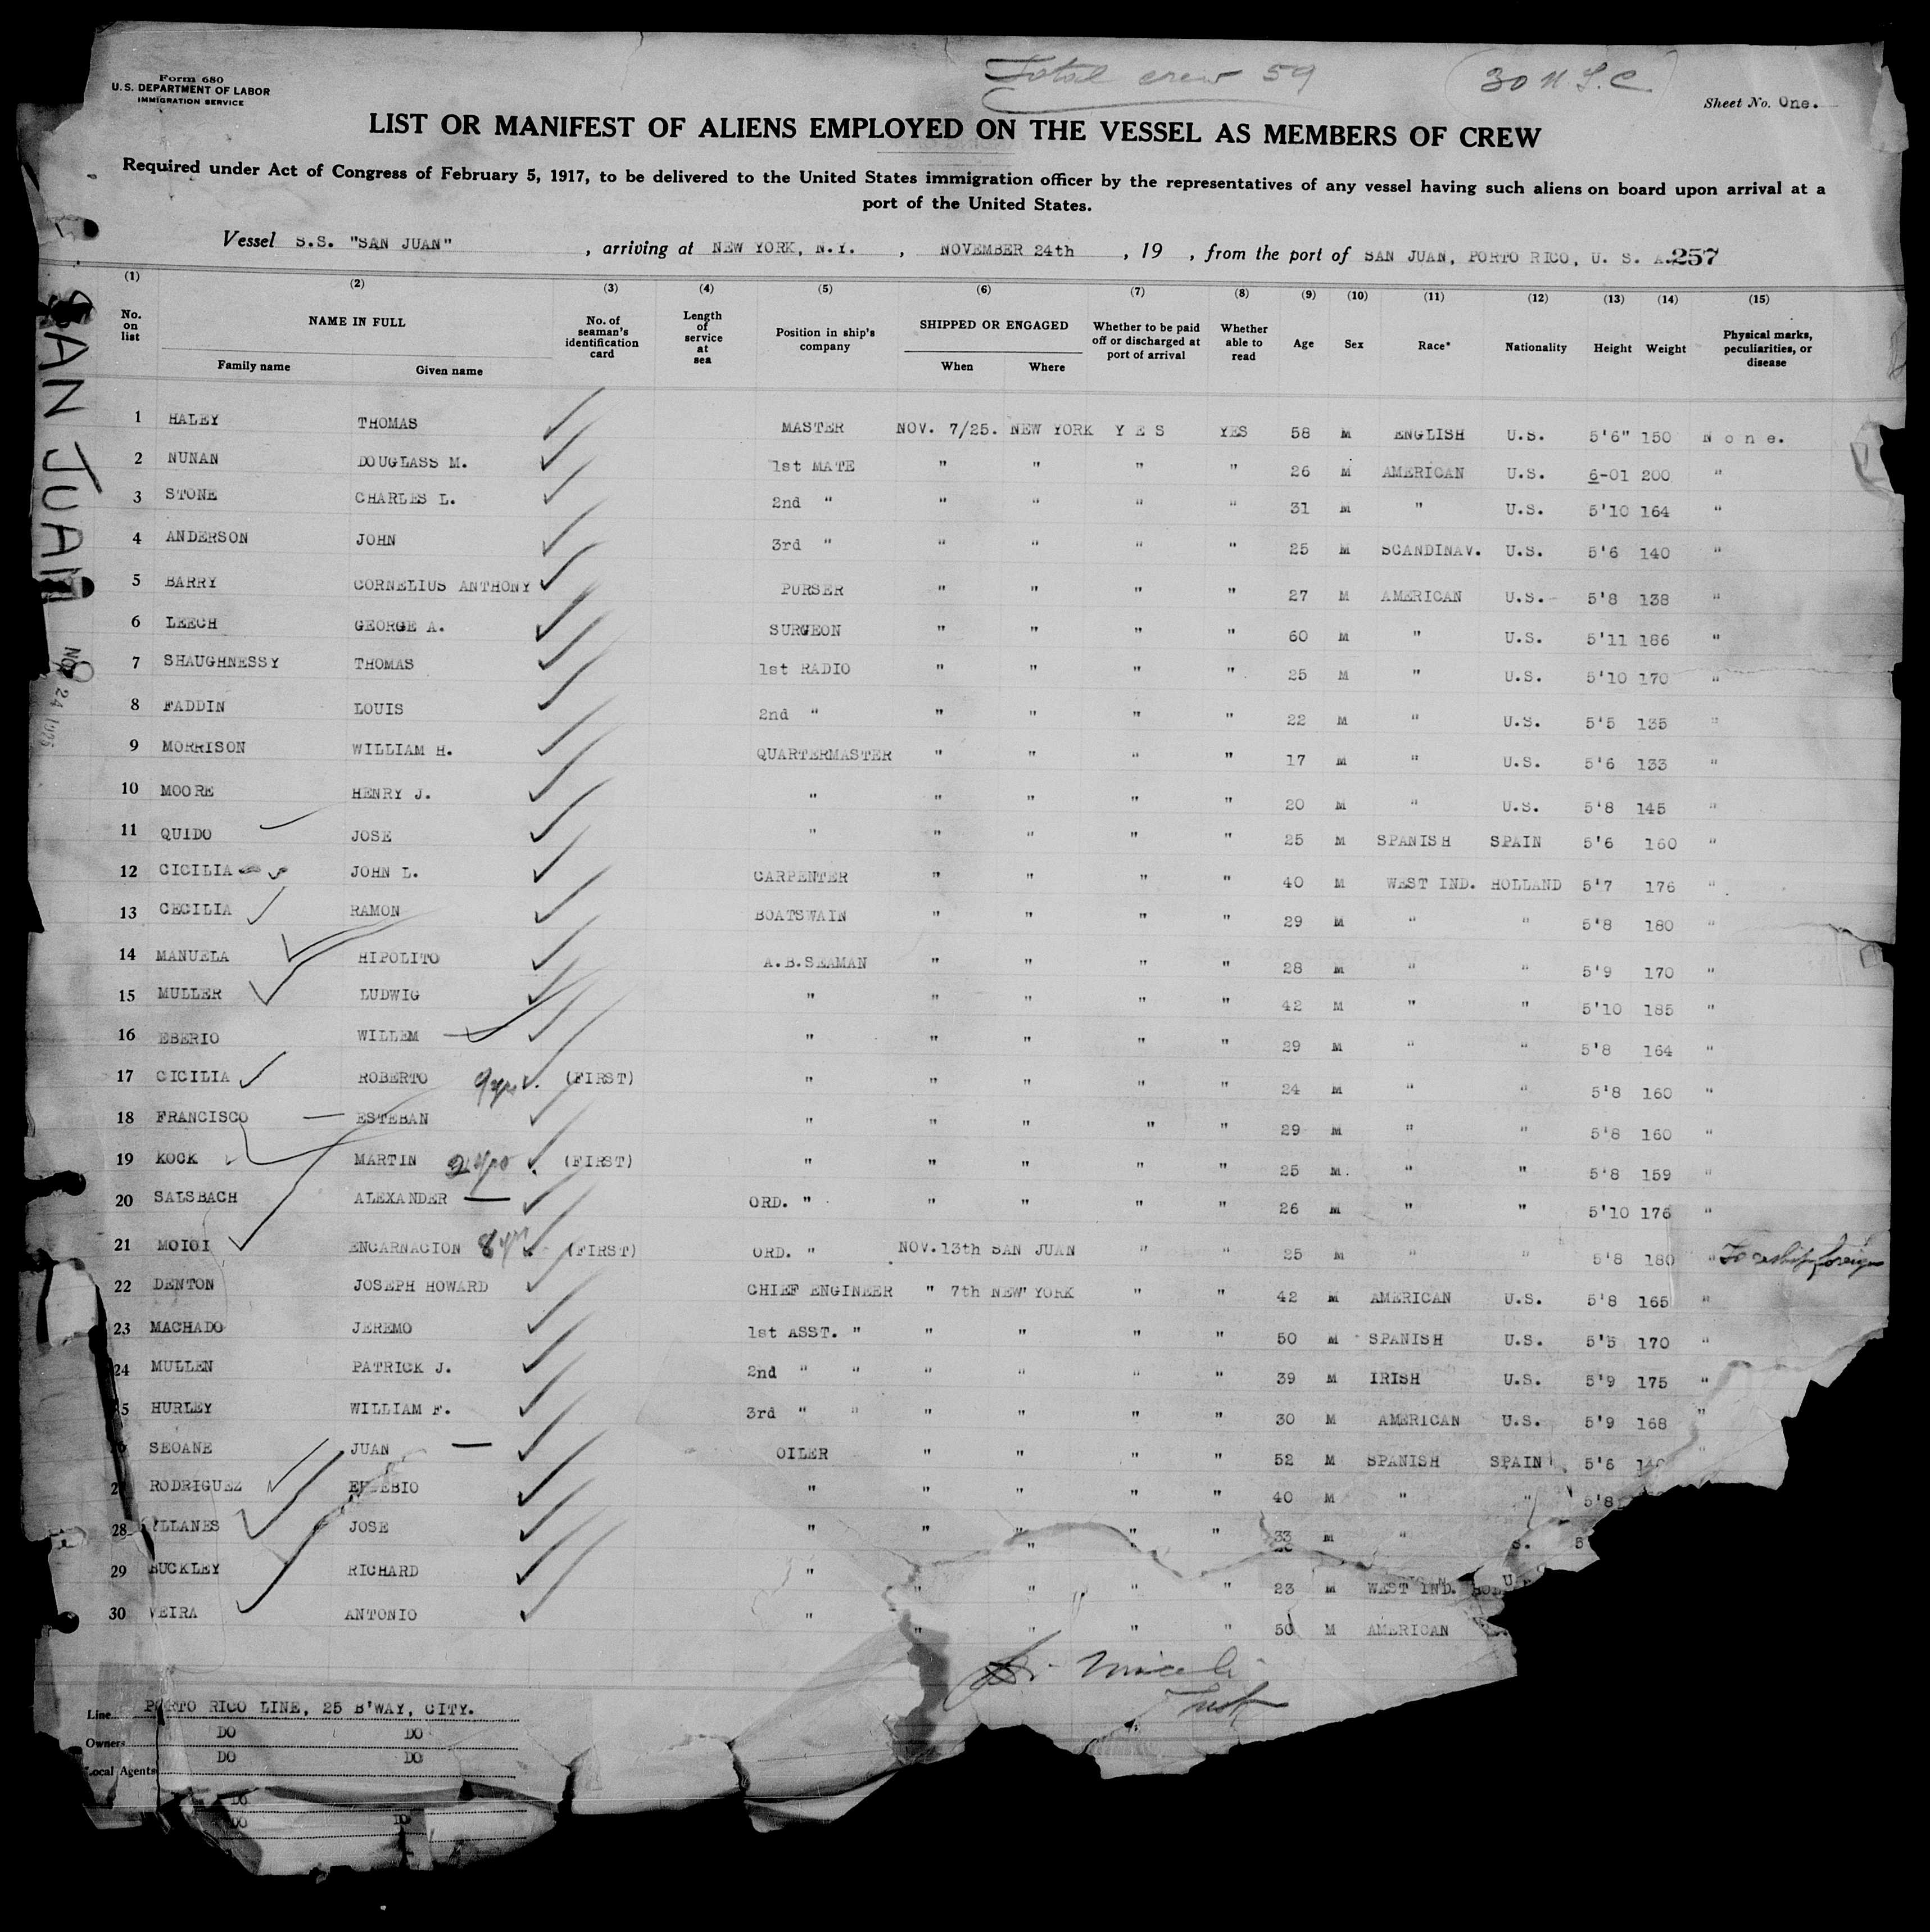 Total crew 59 (30 U.S.C.)
Form 680
U.S. DEPARTMENT OF LABOR
IMMIGRATION SERVICE
Sheet No. One.
LIST OR MANIFEST OF ALIENS EMPLOYED ON THE VESSEL AS MEMBERS OF CREW
Required under Act of Congress of February 5, 1917, to be delivered to the United States immigration officer by the representatives of any vessel having such aliens on board upon arrival at a
port of the United States.
Vessel S.S. "SAN JUAN" , arriving at NEW YORK, N.Y. , NOVEMBER 24th , 19 , from the port of SAN JUAN, PORTO RICO, U. S. A. 257
SAN JUAN
NOV 24 1925
(1) (2) (3) (4) (5) (6) (7) (8) (9) (10) (11) (12) (13) (14) (15)
No. on list NAME IN FULL Family name Given name No. of seaman's identification card Length of service at sea Position in ship's company SHIPPED OR ENGAGED When Where Whether to be paid off or discharged at port of arrival Whether able to read Age Sex Race* Nationality Height Weight Physical marks, peculiarities, or disease
1 HALEY THOMAS MASTER NOV. 7/25. NEW YORK Y E S YES 58 M ENGLISH U.S. 5'6" 150 N o n e.
2 NUNAN DOUGLASS M. 1st MATE " " " " 26 M AMERICAN U.S. 6-01 200 "
3 STONE CHARLES L. 2nd " " " " " 31 M " U.S. 5'10 164 "
4 ANDERSON JOHN 3rd " " " " " 25 M SCANDINAV. U.S. 5'6 140 "
5 BARRY CORNELIUS ANTHONY PURSER " " " " 27 M AMERICAN U.S. 5'8 138 "
6 LEECH GEORGE A. SURGEON " " " " 60 M " U.S. 5'11 186 "
7 SHAUGHNESSY THOMAS 1st RADIO " " " " 25 M " U.S. 5'10 170 "
8 FADDIN LOUIS 2nd " " " " " 22 M " U.S. 5'5 135 "
9 MORRISON WILLIAM H. QUARTERMASTER " " " " 17 M " U.S. 5'6 133 "
10 MOORE HENRY J. " " " " " 20 M " U.S. 5'8 145 "
11 QUIDO JOSE " " " " " 25 M SPANISH SPAIN 5'6 160 "
12 CICILIA JOHN L. CARPENTER " " " " 40 M WEST IND. HOLLAND 5'7 176 "
13 CECILIA RAMON BOATSWAIN " " " " 29 M " " 5'8 180 "
14 MANUELA HIPOLITO A.B.SEAMAN " " " " 28 M " " 5'9 170 "
15 MULLER LUDWIG " " " " " 42 M " " 5'10 185 "
16 EBERIO WILLEM " " " " " 29 M " " 5'8 164 "
17 CICILIA ROBERTO 9 yrs. (FIRST) " " " " " 24 M " " 5'8 160 "
18 FRANCISCO ESTEBAN " " " " " 29 M " " 5'8 160 "
19 KOCK MARTIN (FIRST) " " " " " 25 M. " " 5'8 159 "
20 SALSBACH ALEXANDER ORD. " " " " " 26 M " " 5'10 176 "
21 MOIOI ENCARNACION 8 yrs (FIRST) ORD. " NOV.13th SAN JUAN " " 25 M " " 5'8 180 " To reship foreign
22 DENTON JOSEPH HOWARD CHIEF ENGINEER " 7th NEW YORK " " 42 M AMERICAN U.S. 5'8 165 "
23 MACHADO JEREMO 1st ASST. " " " " " 50 M SPANISH U.S. 5'5 170 "
24 MULLEN PATRICK J. 2nd " " " " " " 39 M IRISH U.S. 5'9 175 "
5 HURLEY WILLIAM F. 3rd " " " " " " 30 M AMERICAN U.S. 5'9 168 "
SEOANE JUAN OILER " " " " 52 M SPANISH SPAIN 5'6 "
2 RODRIGUEZ EUSEBIO " " " " " 40 M " " 5'8
28 YLLANES JOSE " " " " " 33 M "
29 BUCKLEY RICHARD " " " " " 23 M WEST IND.
30 VEIRA ANTONIO " " " " " 50 M AMERICAN
Line PORTO RICO LINE, 25 B'WAY, CITY.
Owners DO DO
Local Agents DO DO
DO
DO DO